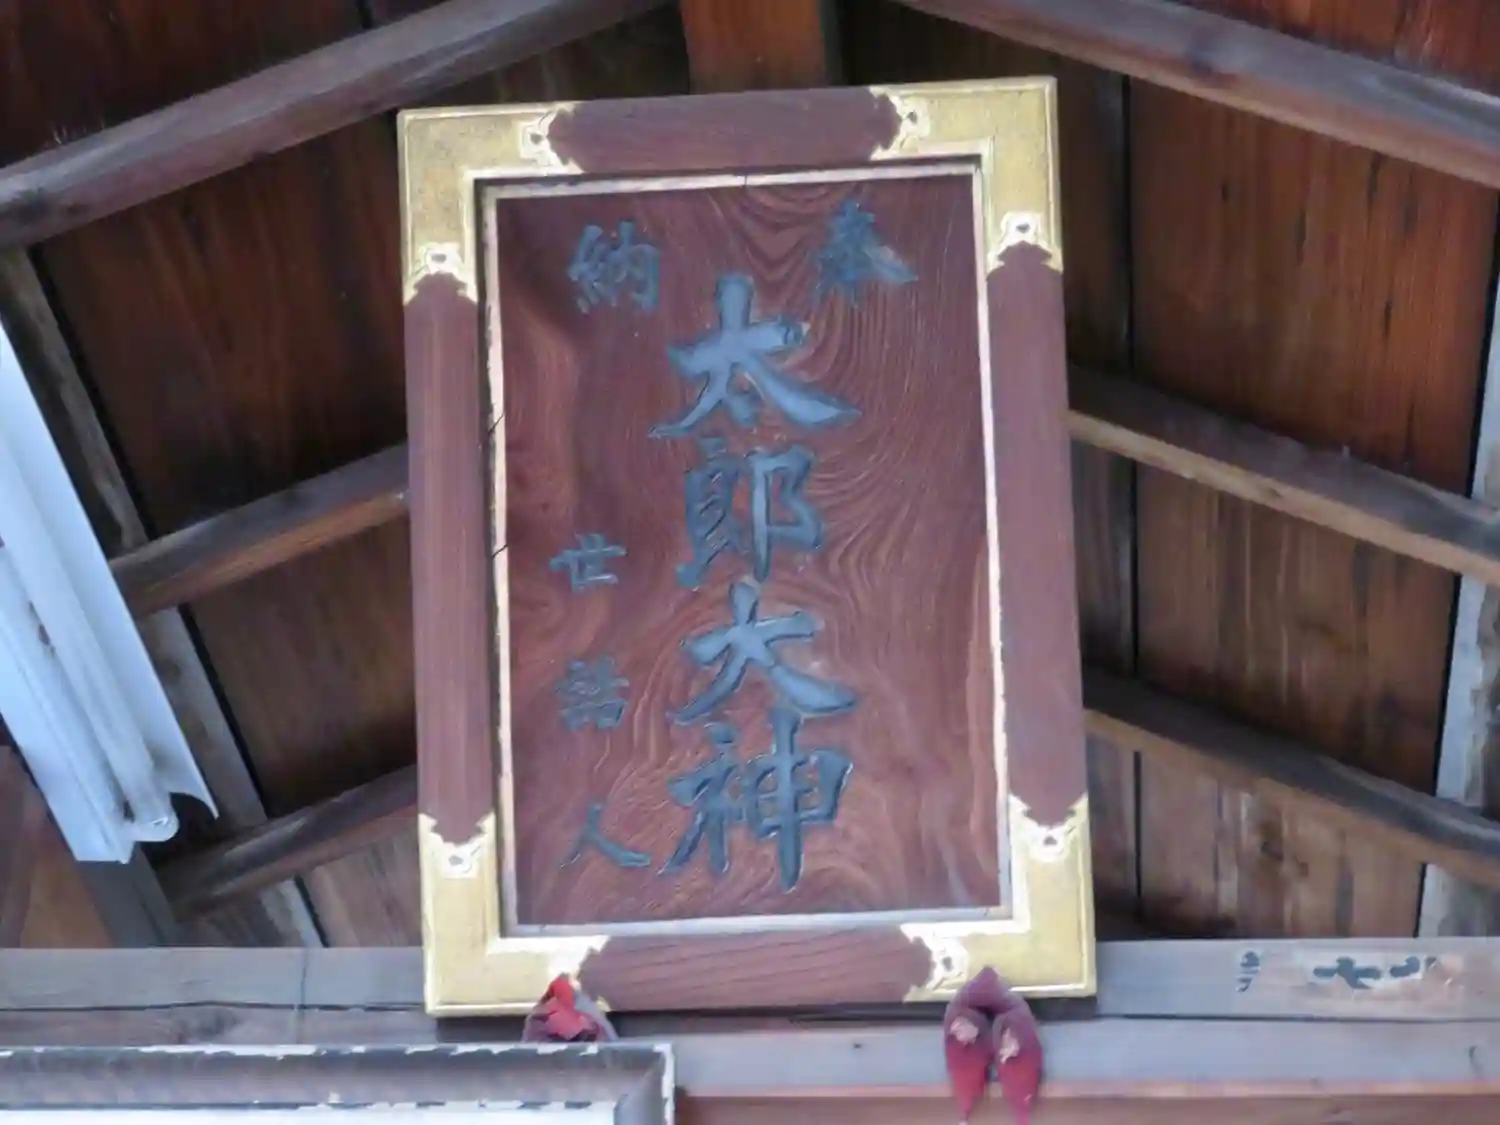 奉納
太郎大神
世話人